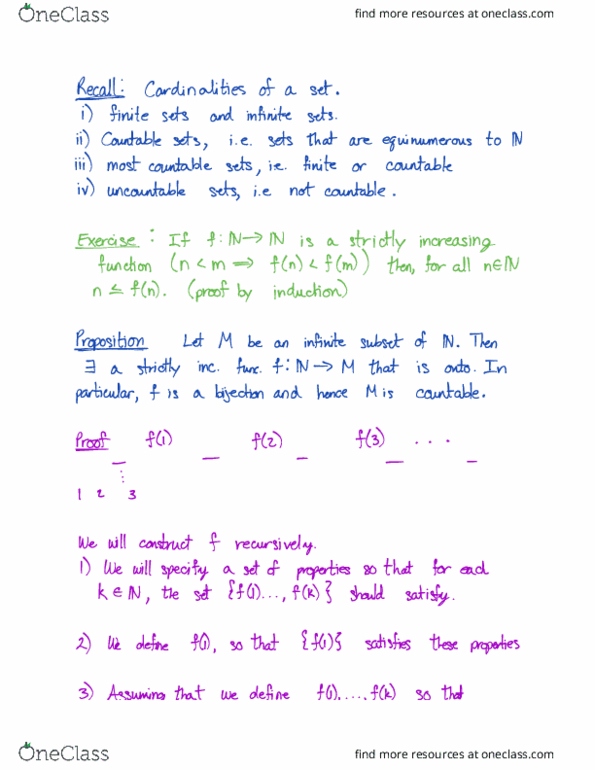 OneClass
find more resources at oneclass.com
Recall: Cardinalities of a set.
i) finite sets and infinite sets.
ii) Countable sets, i.e. sets that are equinumerous to ℕ
iii) most countable sets, i.e. finite or countable
iv) uncountable sets, i.e not countable.
Exercise: If f: ℕ→ℕ is a strictly increasing
function (n < m ⟹ f(n) < f(m)) then, for all n∈ℕ
n ≤ f(n). (proof by induction)
Proposition Let M be an infinite subset of ℕ. Then
∃ a strictly inc. func. f: ℕ→M that is onto. In
particular, f is a bijection and hence M is countable.
Proof f(1) f(2) f(3) ...
1 2 3
We will construct f recursively.
1) We will specify a set of properties so that for each
k∈ℕ, the set {f(1)..., f(k)} should satisfy.
2) We define f(1), so that {f(1)} satisfies these properties
3) Assuming that we define f(1),....,f(k) so that
OneClass
find more resources at oneclass.com